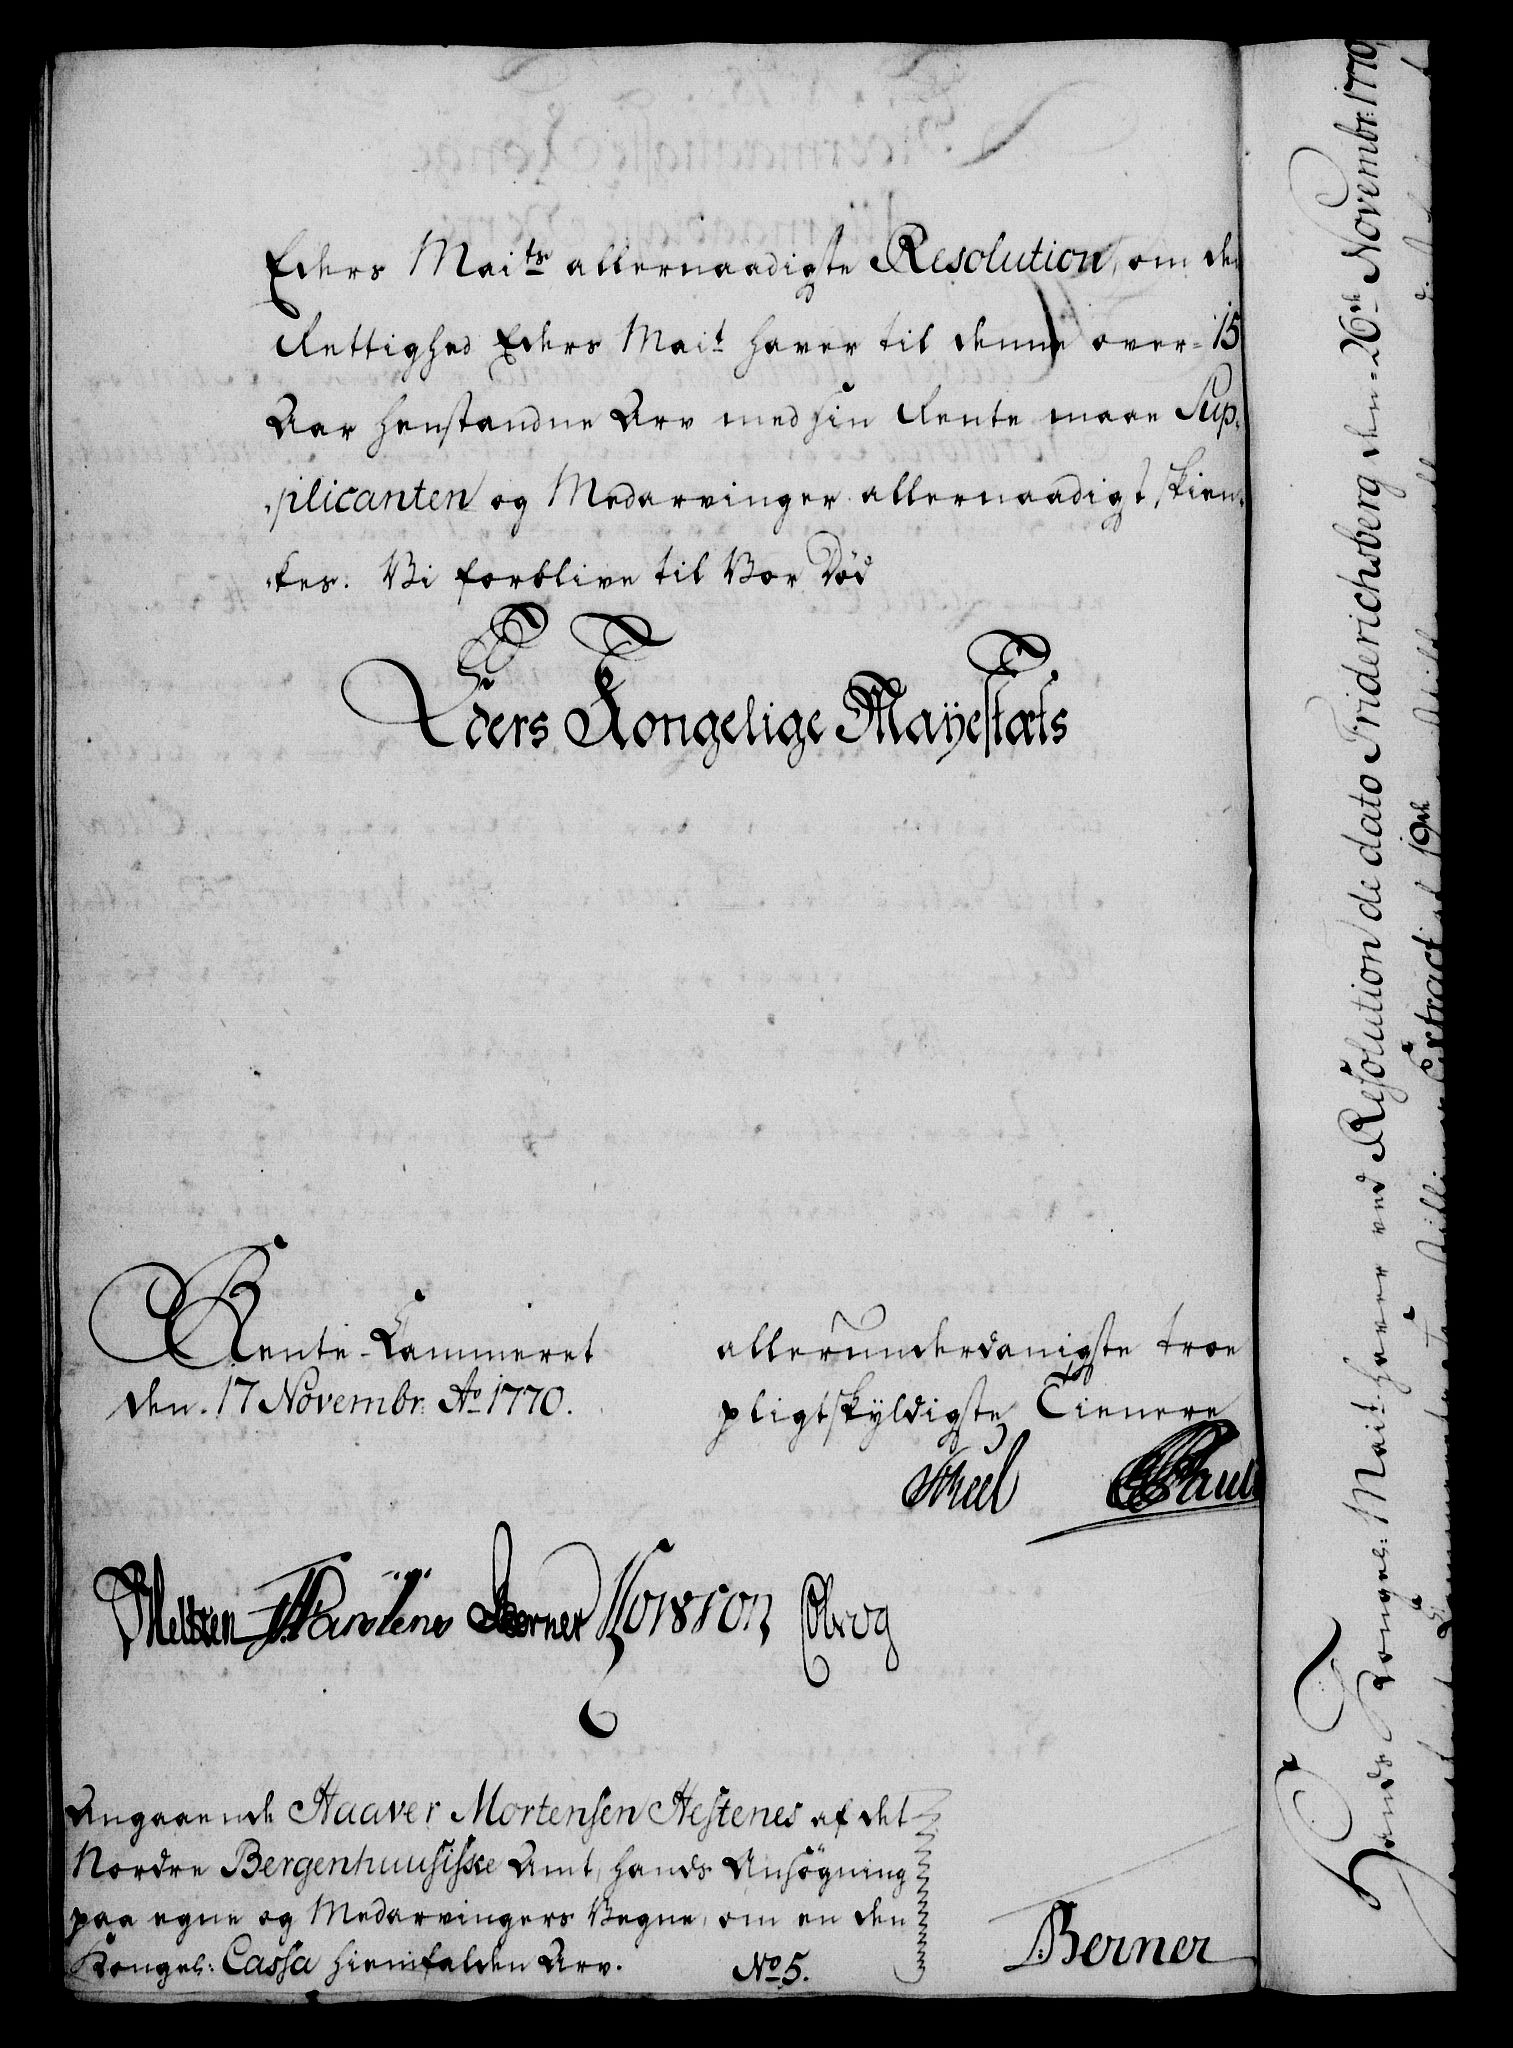 Eders Maits allernaadigste Resolution, om den
Rettighed Eders Mait haver til denne over 15
Aar henstandne Arv med sin Rente maae Sup-
plicanten og Medarvinger allernaadigst skien-
kes. Vi forblive til Vor Død
Eders Kongelige Mayestæts
Rente-Cammeret
den 17 Novembr: Ao 1770.
allerunderdanigste troe
pligtskyldigste Tienere
Skeel
Berner
Angaaende Haaver Mortensen Hestenes af det
Nordre Bergenhuusiske Amt, hands Ansøgning
paa egne og Medarvingers Vegne, om en den
Kongel: Cassa hiemfalden Arv.
No 5.
Berner
Hands Kongel: Mait: haver ved Resolution de dato Friderichsberg den 26de Novembr: 1770
Extract 19de